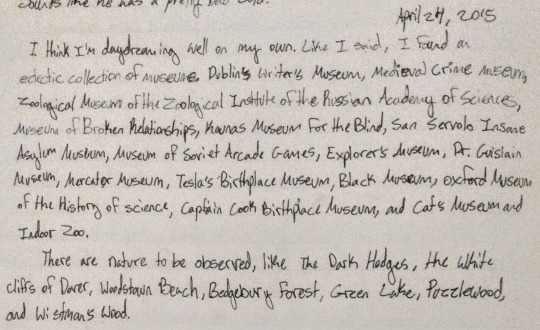 sounds like he has a pretty bad cold.
April 24, 2015
I think I'm daydreaming well on my own. Like I said, I found an
eclectic collection of museums. Dublin's Writer's Museum, Medieval Crime Museum,
Zoological Museum of the Zoological Institute of the Russian Academy of Sciences,
Museum of Broken Relationships, Kaunas Museum For the Blind, San Servolo Insane
Asylum Museum, Museum of Soviet Arcade Games, Explorer's Museum, Dr. Guislain
Museum, Mercator Museum, Tesla's Birthplace Museum, Black Museum, Oxford Museum
of the History of Science, Captain Cook Birthplace Museum, and Cat's Museum and
Indoor Zoo.
There are nature to be observed, like The Dark Hedges, the White
cliffs of Dover, Woodstown Beach, Bedgebury Forest, Green Lake, Puzzlewood,
and Wistman's Wood.